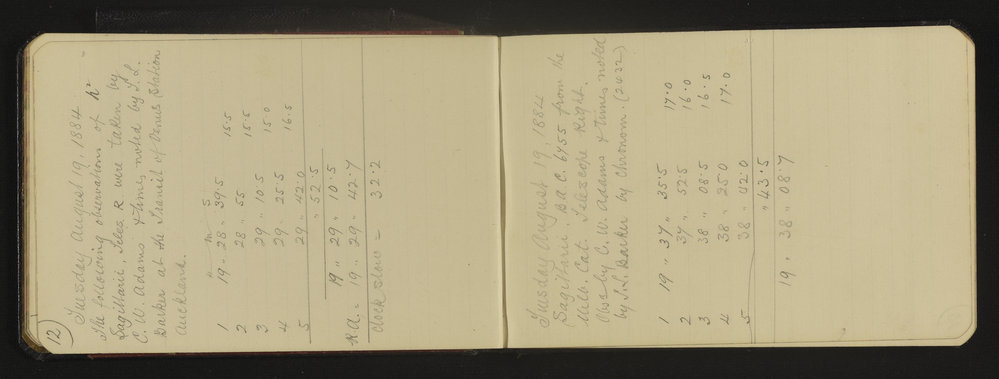 12
Tuesday August 19. 1884
The following observations of h²
Sagittarii, Teles. R were taken by
C. W. Adams & times noted by T. L.
Barker at the Transit of Venus Station
Auckland.
h m s
1 19 " 28 " 39.5 15.5
2 28 " 55 15.5
3 29 " 10.5 15.0
4 29 " 25.5 16.5
5 29 " 42.0
" 52.5
19 " 29 " 10.5
R.A. = 19 " 29 " 42.7
Clock slow = 32.2
Tuesday August 19. 1884
Sagittarii. B.A.C. 6755 from the
Melb. Cat. Telescope Right.
Obsd by C. W. Adams & times noted
by T. L. Barker by Chronom. (2032)
1 19 " 37 " 35.5 17.0
2 37 " 52.5 16.0
3 38 " 08.5 16.5
4 38 " 25.0 17.0
5 38 " 42.0
" 43.5
19 " 38 " 08.7